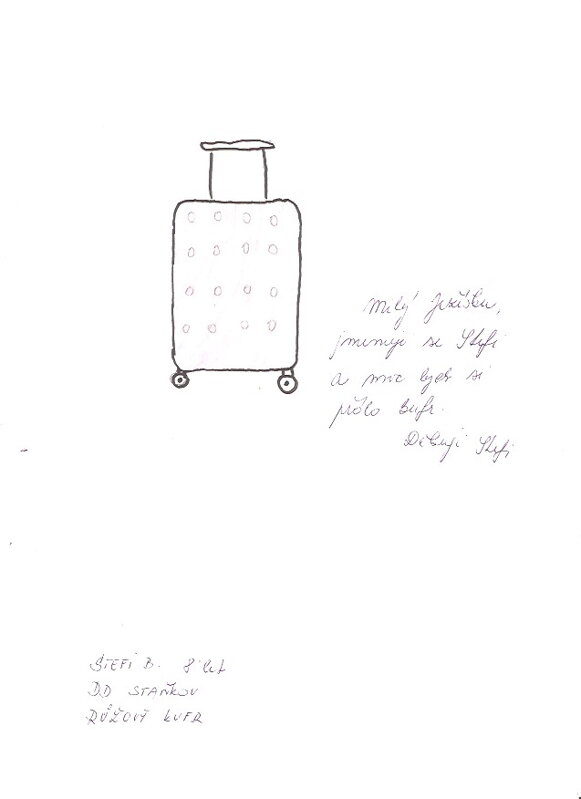 Milý Ježíšku,
jmenuji se Štefi
a moc bych si
přála kufr.
Děkuji Štefi
ŠTEFI B. 8 let
DD STAŇKOV
RŮŽOVÝ KUFR